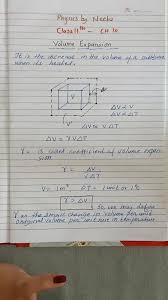 Physics by Neelu
Class 11th - CH 10
Volume Expansion
It is the increase in the volume of a substance
when its heated.
V
ΔV ∝ V
ΔV ∝ ΔT
ΔV ∝ V ΔT
ΔV = γ V ΔT
γ = is called coefficient of volume expan
sion
γ = ΔV / V ΔT
V = 1m³, ΔT = 1 unit or 1°C
γ = ΔV
So, we may define
γ as the small change in volume per unit
original volume per unit rise in temperature